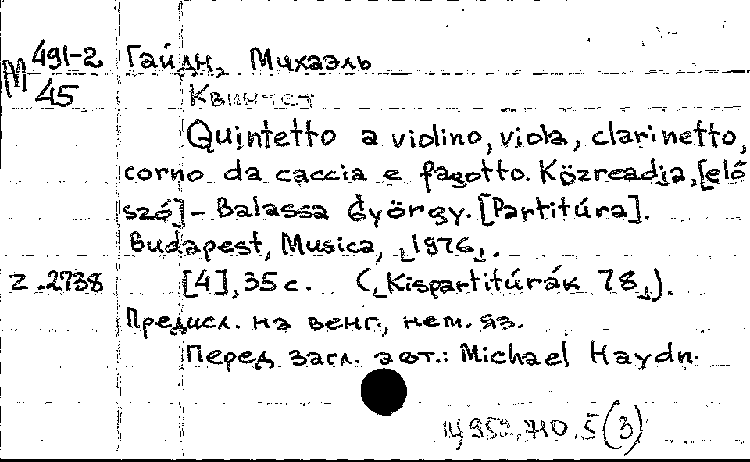 М 491-2 Гайдн, Михаэль
45 Квинтет
Quintetto a violino, viola, clarinetto,
corno da caccia e fagotto. Közreadja, [elő
szó] – Balassa György. [Partitúra].
Budapest, Musica, [1976].
Z.2738 [4], 35 с. ([Kispartitúrák 78]).
Предисл. на венг., нем. яз.
Перед загл. авт.: Michael Haydn.
Ц 952.710.5(3)